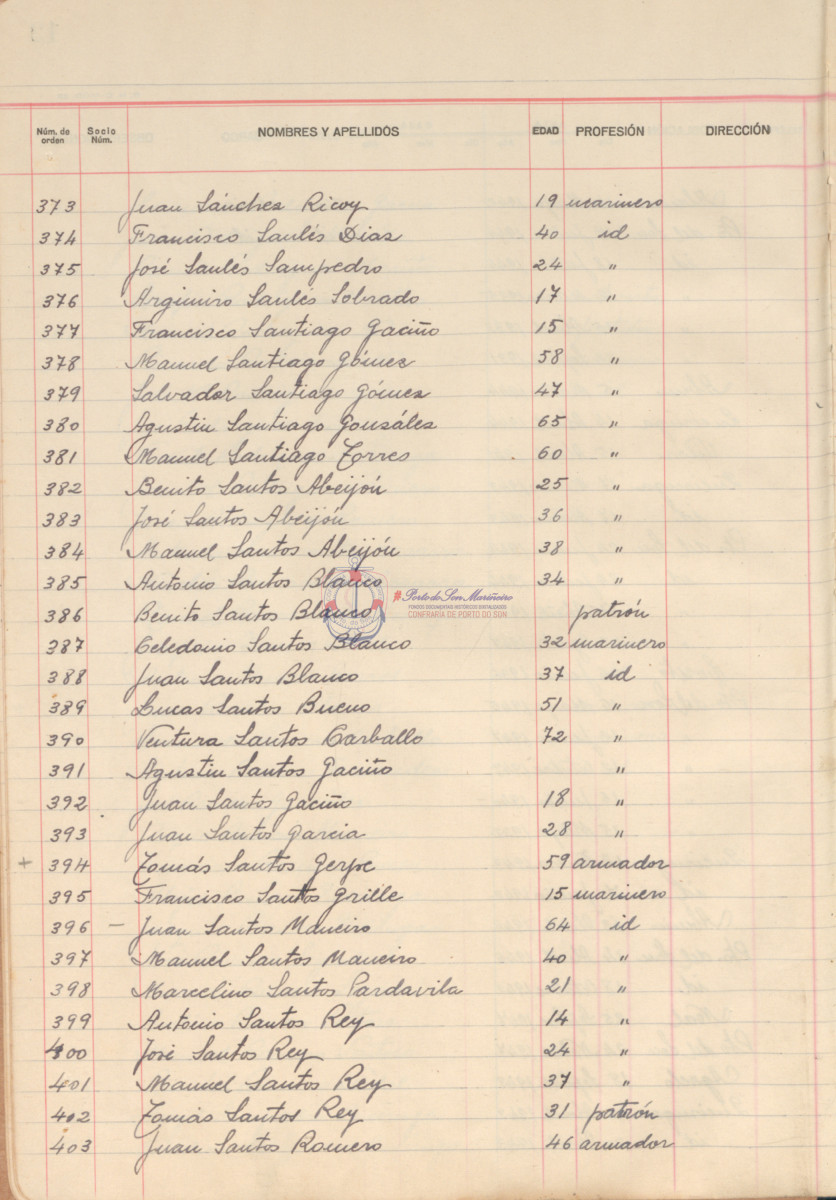 Núm. de orden Socio Núm. NOMBRES Y APELLIDOS EDAD PROFESIÓN DIRECCIÓN
373 Juan Sánchez Ricoy 19 marinero
374 Francisco Saulés Dias 40 id
375 José Saulés Sampedro 24 "
376 Argimiro Saulés Sobrado 17 "
377 Francisco Santiago Gaciño 15 "
378 Manuel Santiago Gómez 58 "
379 Salvador Santiago Gómez 47 "
380 Agustin Santiago Gonzáles 65 "
381 Manuel Santiago Torres 60 "
382 Benito Santos Abeijón 25 "
383 José Santos Abeijón 36 "
384 Manuel Santos Abeijón 38 "
385 Antonio Santos Blanco 34 "
#Porto do Son Mariñeiro
FONDOS DOCUMENTAIS HISTÓRICOS DIXITALIZADOS
CONFRARÍA DE PORTO DO SON
386 Benito Santos Blanco patrón
387 Celedonio Santos Blanco 32 marinero
388 Juan Santos Blanco 37 id
389 Lucas Santos Bueno 51 "
390 Ventura Santos Carballo 72 "
391 Agustin Santos Gaciño "
392 Juan Santos Gaciño 18 "
393 Juan Santos Garcia 28 "
+ 394 Tomás Santos Gerpe 59 armador
395 Francisco Santos Grille 15 marinero
396 — Juan Santos Maneiro 64 id
397 Manuel Santos Maneiro 40 "
398 Marcelino Santos Pardavila 21 "
399 Antonio Santos Rey 14 "
400 José Santos Rey 24 "
401 Manuel Santos Rey 37 "
402 Tomás Santos Rey 31 patrón
403 Juan Santos Romero 46 armador